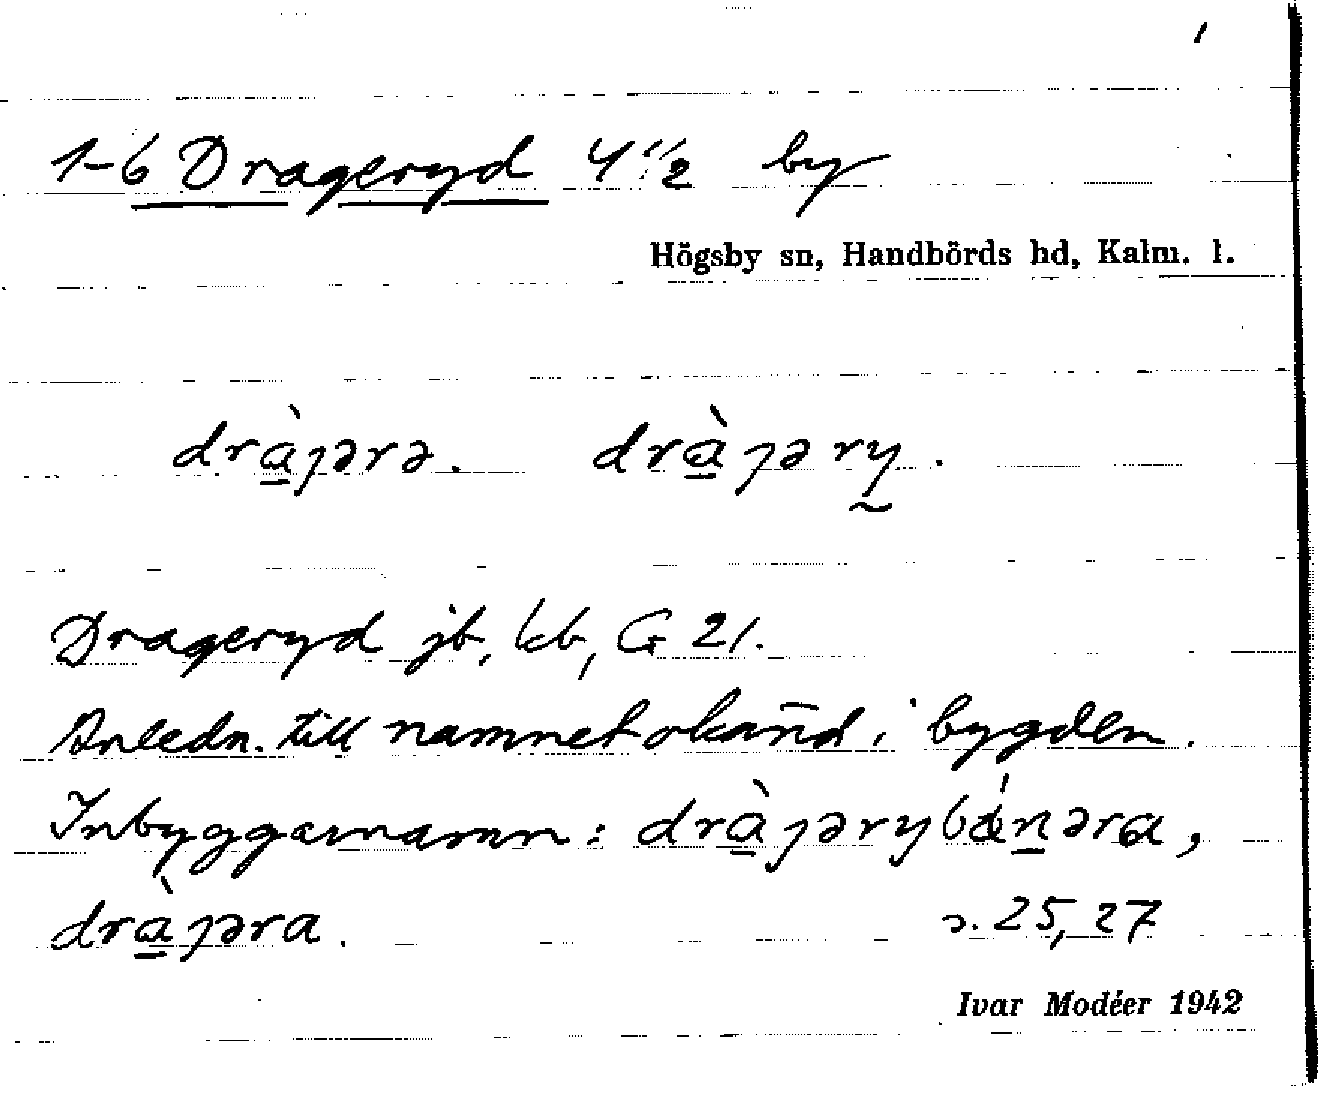 1
1-6 Drageryd 4 1/2 by
Högsby sn, Handbörds hd, Kalm. l.
drà̱ȷərə. drà̱ȷəry̰.
Drageryd jb, kb, G 21.
Anledn. till namnet okänd i bygden.
Inbyggarnamn: drà̱ȷərybón̲əra,
drà̱ȷəra. s. 25, 27
Ivar Modéer 1942